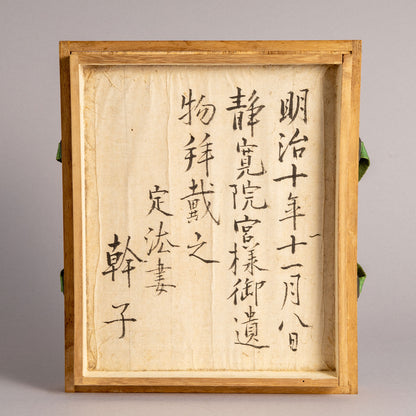 明治十年十一月八日
静寛院宮様御遺
物拝戴之
定法妻
幹子